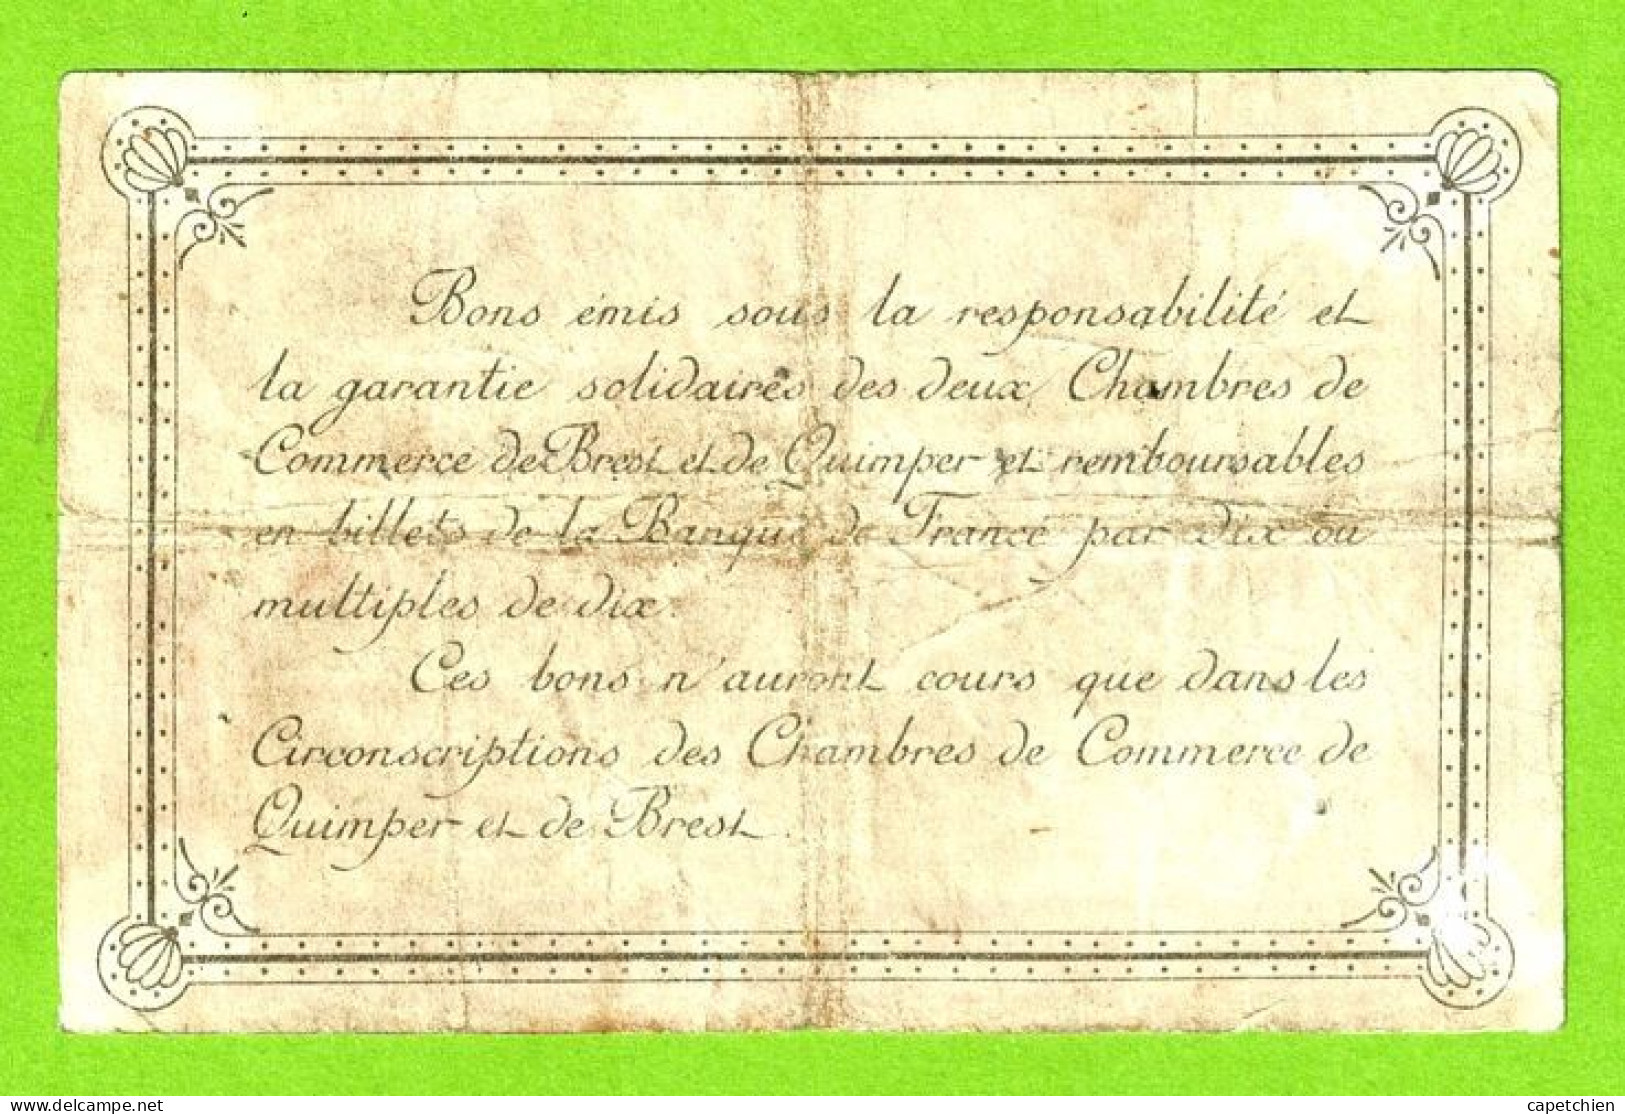 Bons émis sous la responsabilité et
la garantie solidaires des deux Chambres de
Commerce de Brest et de Quimper et remboursables
en billets de la Banque de France par dix ou
multiples de dix.
Ces bons n'auront cours que dans les
Circonscriptions des Chambres de Commerce de
Quimper et de Brest.
www.delcampe.net
capetchien